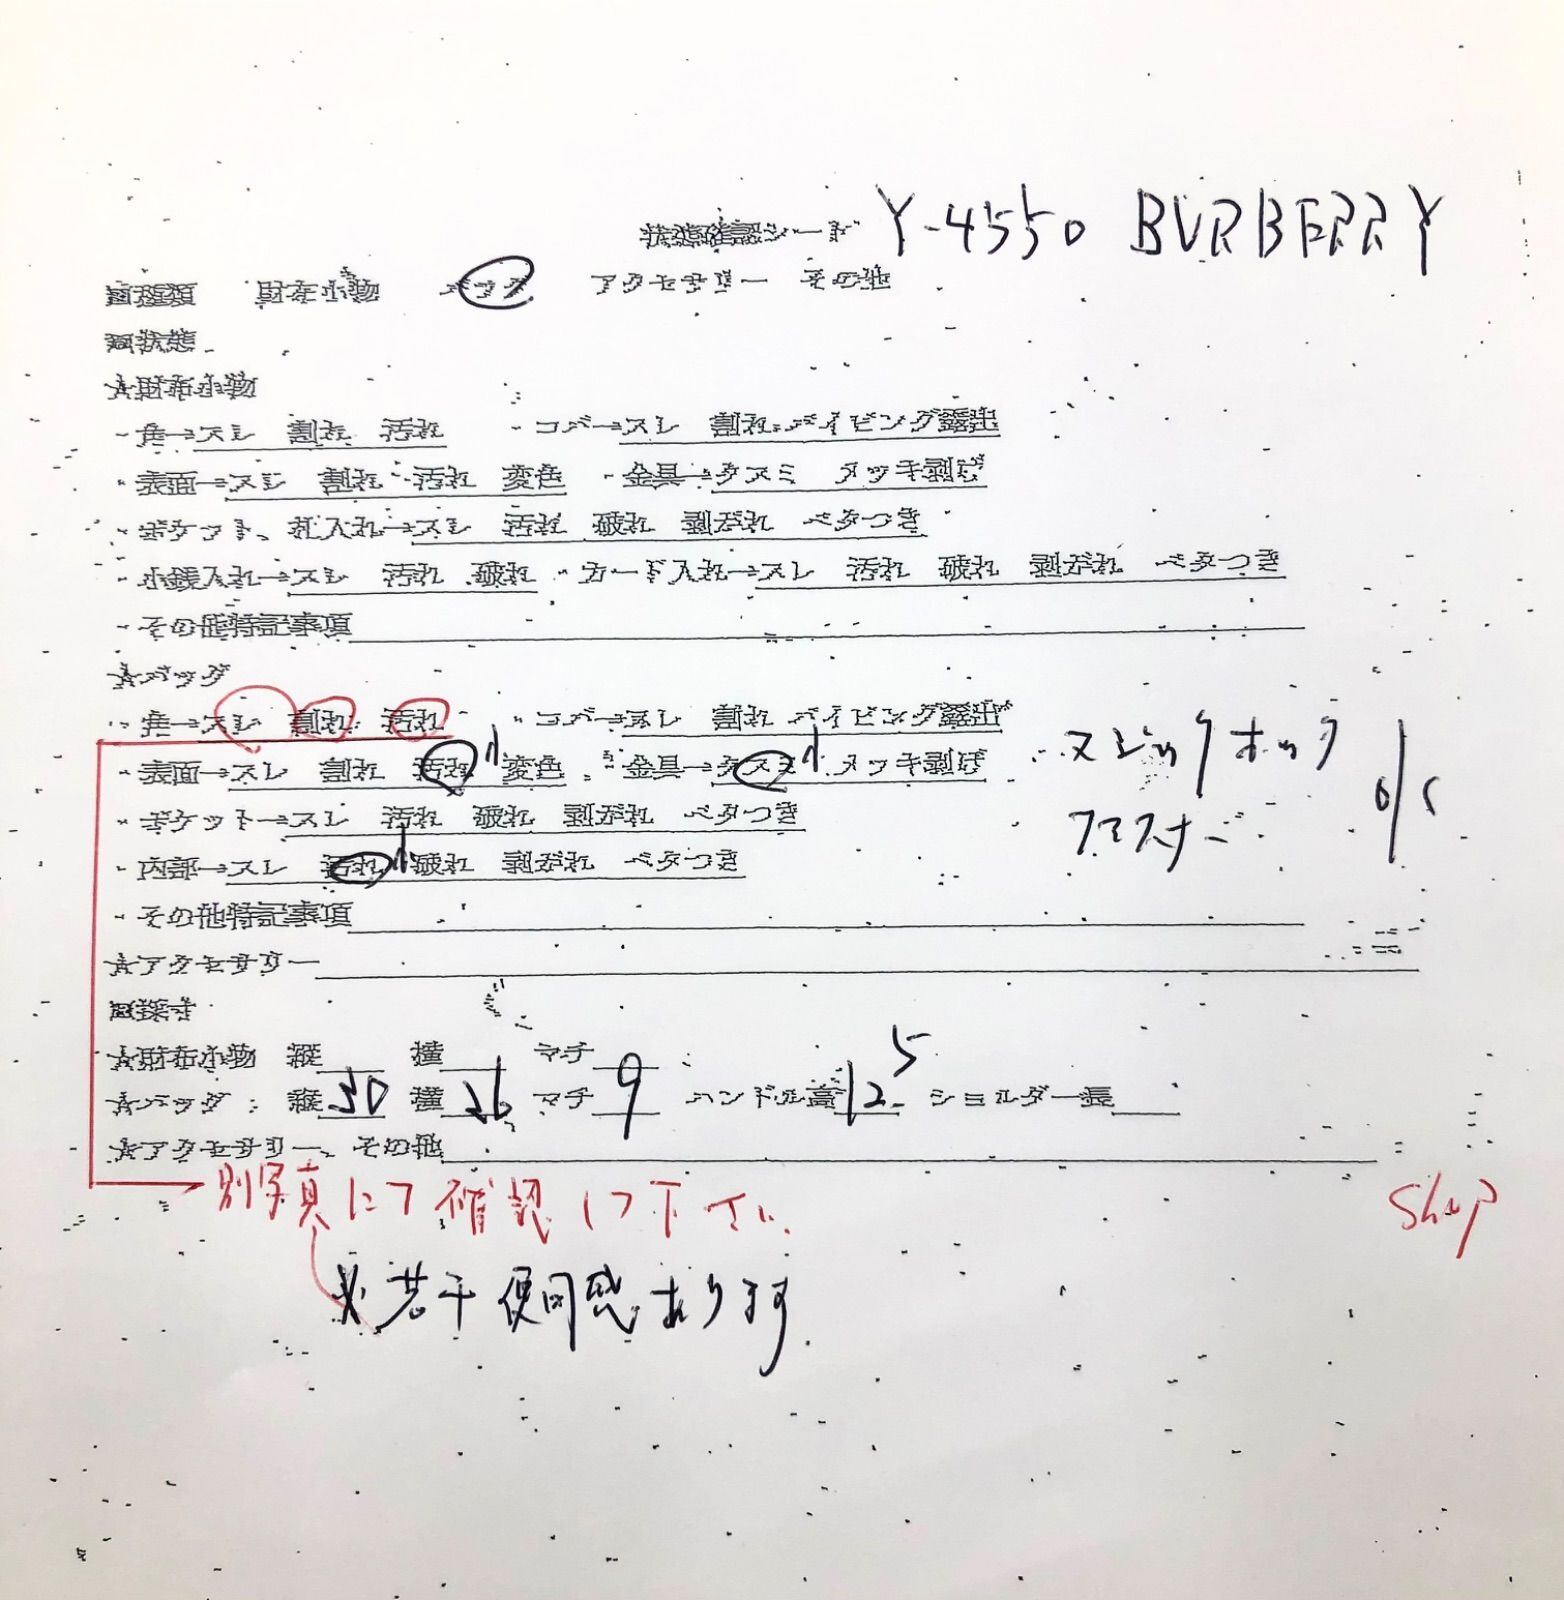 状態確認シート Y-4550 BURBERRY
□種類 財布小物 バッグ アクセサリー その他
□状態
☆財布小物
・角→スレ 割れ 汚れ ・コバ→スレ 割れ パイピング露出
・表面→スレ 割れ 汚れ 変色 ・金具→クスミ メッキ剥げ
・ポケット、札入れ→スレ 汚れ 破れ 剥がれ ベタつき
・小銭入れ→スレ 汚れ 破れ ・カード入れ→スレ 汚れ 破れ 剥がれ ベタつき
・その他特記事項
☆バッグ
・角→スレ 割れ 汚れ ・コバ→スレ 割れ パイピング露出
・表面→スレ 割れ 汚れ 小 変色 ・金具→クスミ 小 メッキ剥げ
スレックホック
・ポケット→スレ 汚れ 破れ 剥がれ ベタつき
ファスナー
・内部→スレ 汚れ 小 破れ 剥がれ ベタつき
・その他特記事項
☆アクセサリー
□採寸
☆財布小物 縦 横 マチ
☆バッグ 縦30 横26 マチ9 ハンドル高12.5 ショルダー長
☆アクセサリー、その他
別写真にて確認して下さい
Shop
※若干使用感あります